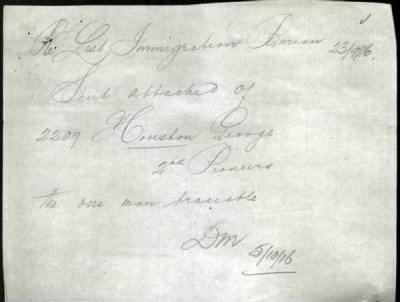 Re List Immigration Bureau 23/9/16.
Sent attached of
2209 Houston George
2nd Pioneers
the one man traceable
DM
5/10/16